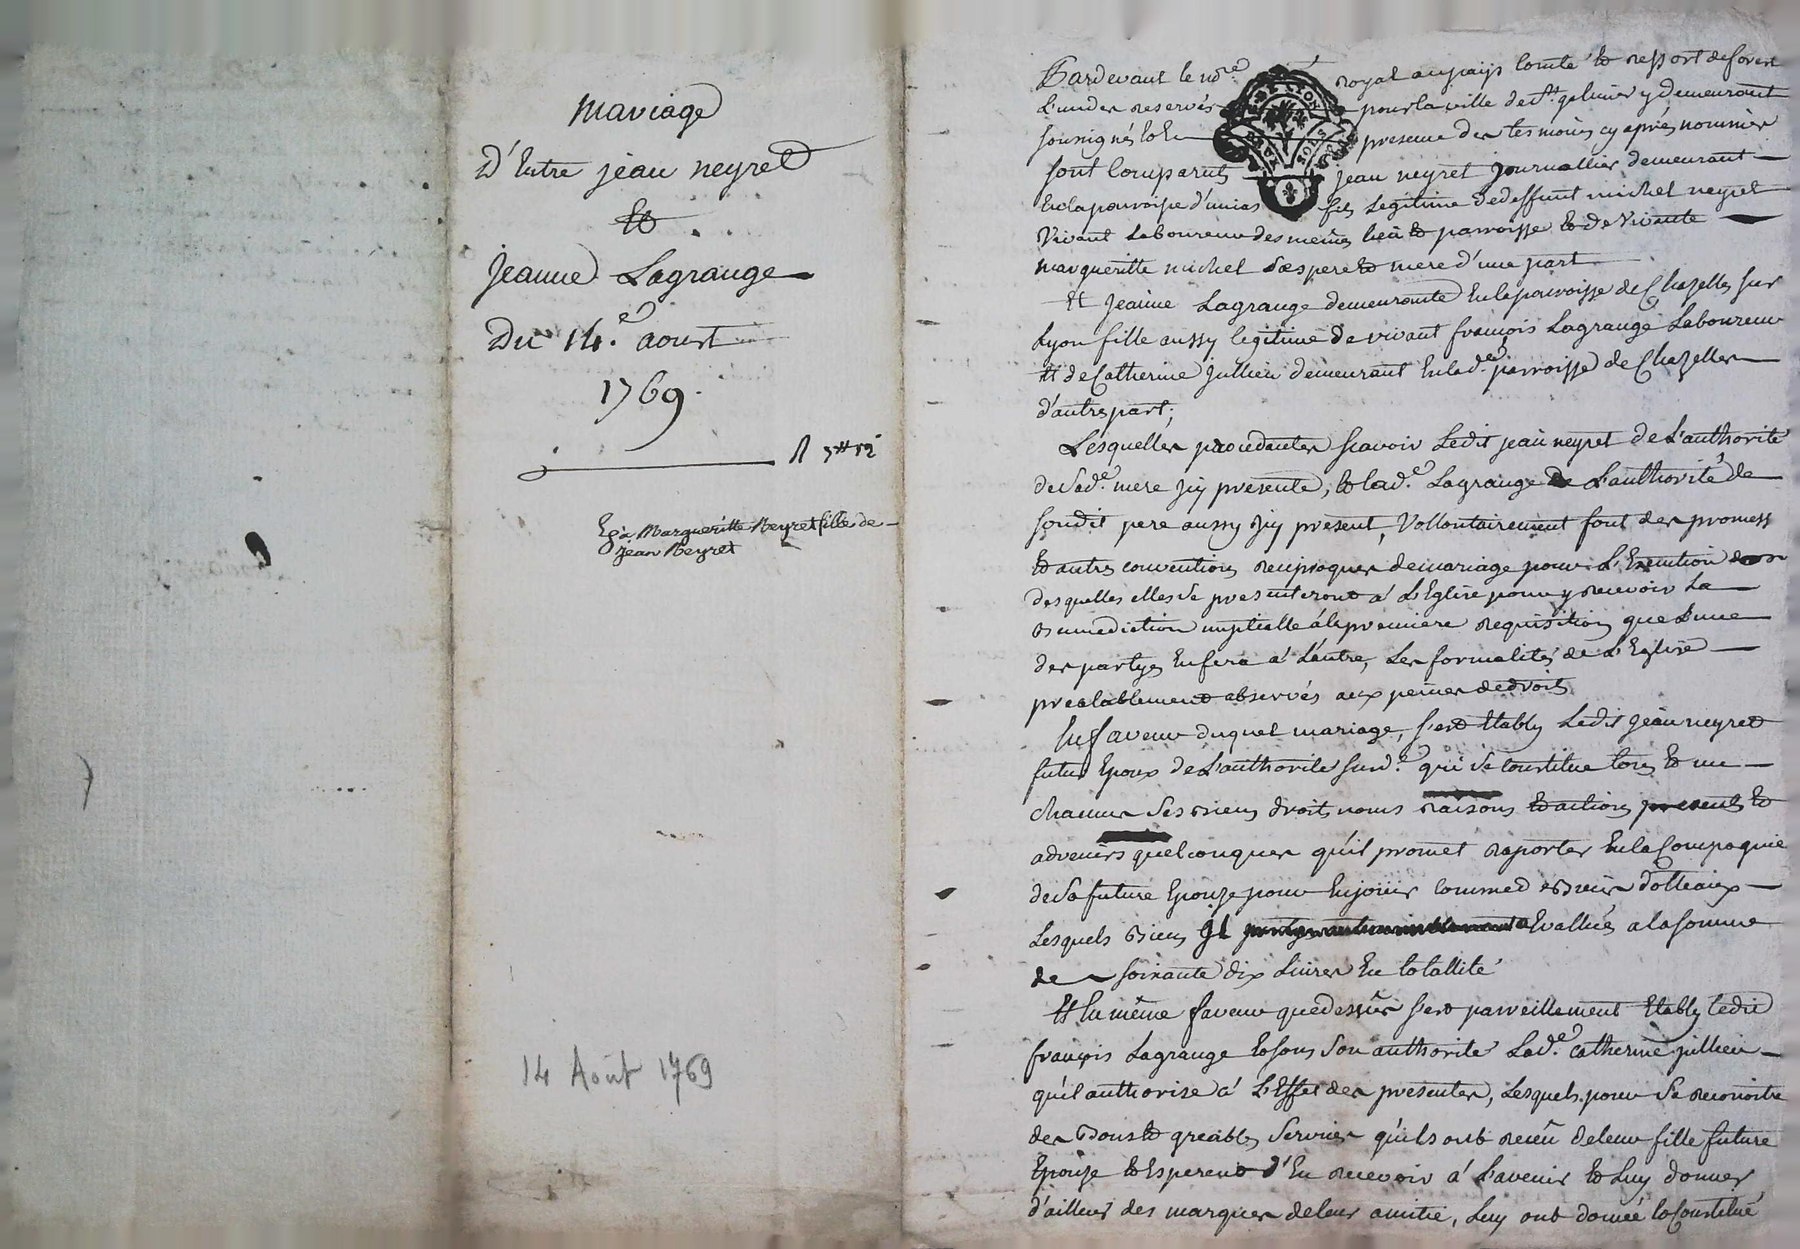 Mariage
D'Entre jean neyret
Et
Jeanne Lagrange
Du 14.e aoust
1769.
3tt 12s
Exp.a Margueritte Neyret fille de
jean Neyret
14 Août 1769
Pardevant le nore royal au pays comté et ressort de forest
L'un des reservés pour la ville de st. galmier y demeurant
soussigné et en presence des temoins cy après nommés
sont comparus jean neyret journallier demeurant
En la parroisse d'unias fils Legitime de deffunt michel neyret
Vivant Laboureur des memes lieu et parroisse et de vivante
margueritte michel ses pere et mere d'une part
Et Jeanne Lagrange demeurante En la parroisse de Chazelles sur
Lyon fille aussy legitime de vivant françois Lagrange Laboureur
Et de Catherine Jullien demeurant En lad.e parroisse de Chazelles
d'autre part;
Lesquelles procedantes scavoir Ledit jean neyret de L'authorité
de Sad.e mere jcy presente, et lad.e Lagrange de L'authorité de
soudit pere aussy jcy present, Vollontairement font des promess
et autres conventions reciproques de mariage pour L'Execution
desquelles elles se presenteront à L'Eglise pour y recevoir La
Benediction nuptialle à la premiere requisition que L'une
des partyes En fera à L'autre, Les formalités de L'Eglise
prealablement observés aux peines de droit
En faveur duquel mariage, s'est Etably Ledit jean neyret
futur Epoux de L'authorité susd.e qui se constitue tous et un
chacuns Ses Biens droits noms raisons et actions presents et
advenirs quelconques qu'il promet raporter En la Compagnie
de Sa future Epouze pour En jouir comme de Biens dotteaux
Lesquels Biens Evallués a la somme
de soixante dix Livres En totallité
Et En même faveur que dessus s'est pareillement Etably ledit
françois Lagrange et sous Son authorité Lad.e Catherine jullien
qu'il authorise à L'Effet des presentes, Lesquels pour Se reconoitre
des Bons et greables Services qu'ils ont receu de leur fille future
Epouze et Esperent d'En recevoir à L'avenir et Luy donner
d'ailleurs des marques de leur amitié, Luy ont donné et Constitué